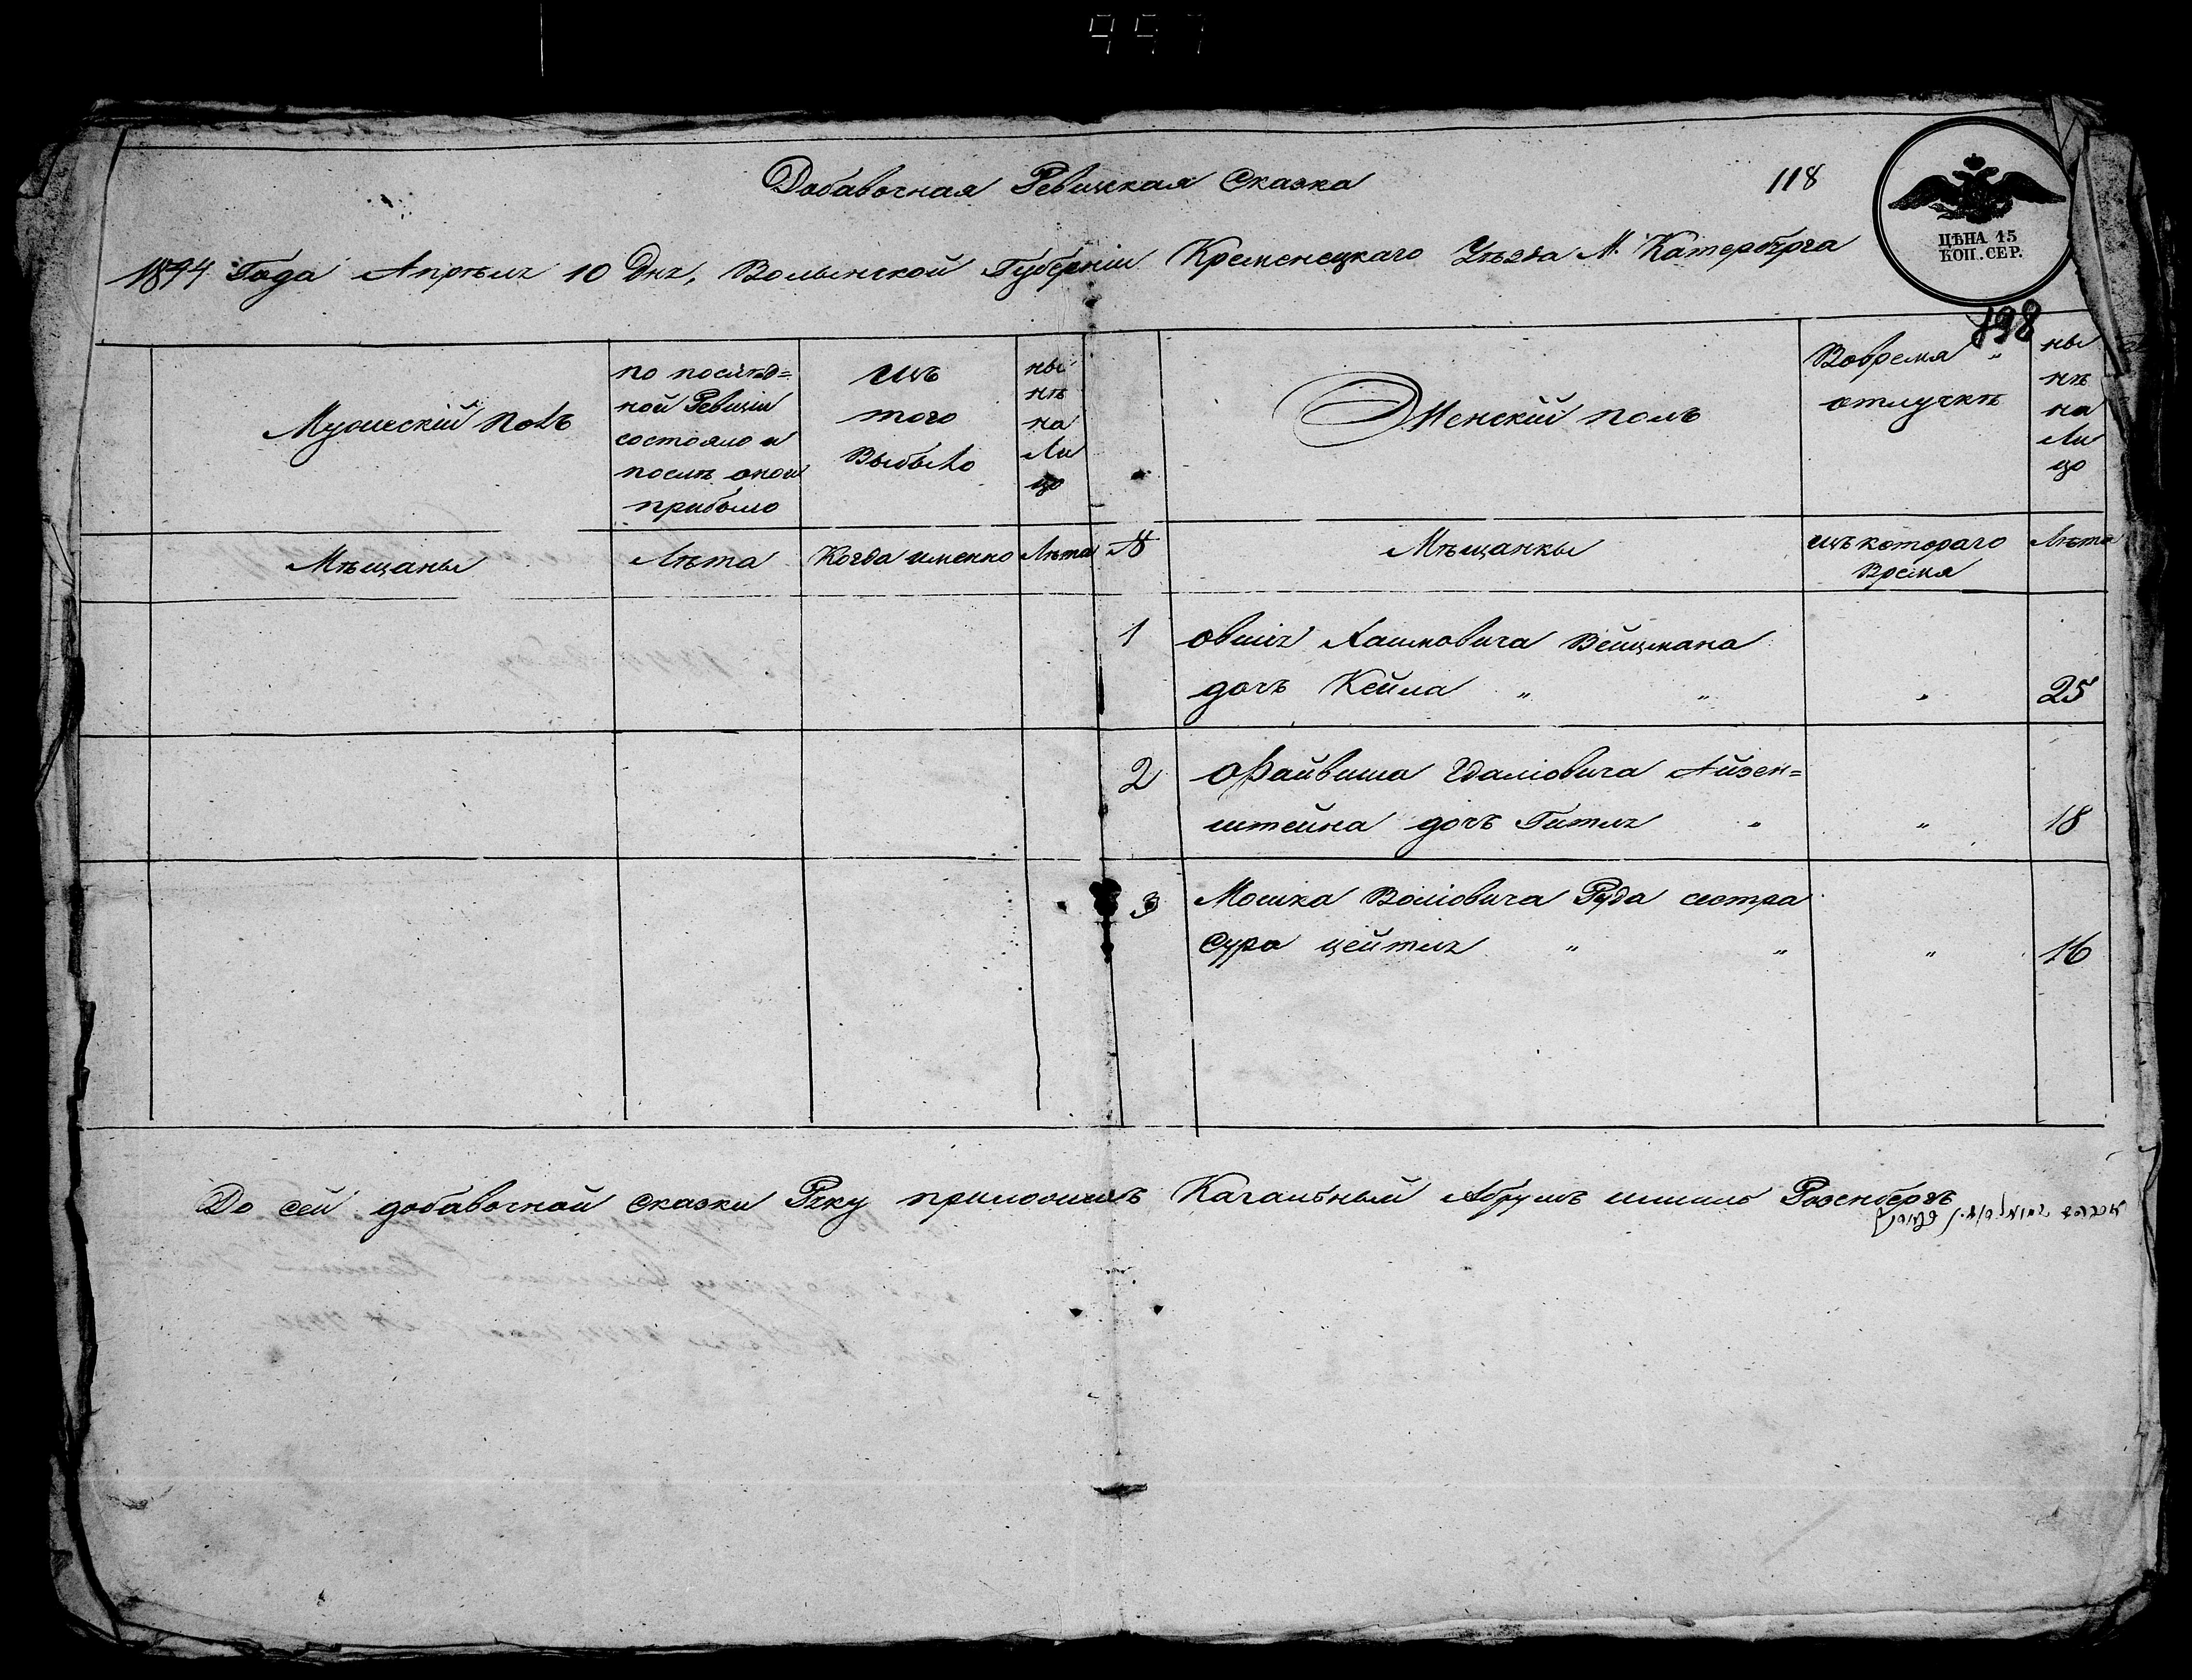 Добавочная Ревизская Сказка
118
ЦѢНА 15
КОП. СЕР.
Года Апрѣля 10 Дня, Волынской Губерніи Кременецкаго Уѣзда М. Катербурга
198
Мужескій Полъ
по послѣд=
ной Ревизіи
состояло и
послѣ оной
прибыло
изъ
того
Выбыло
ны
нѣ
на
Ли
цо
Женскій полъ
Вовремя
отлучкѣ
ны
нѣ
на
Ли
цо
Мѣщаны
Лѣта
Когда именно
Лѣта
№
Мѣщанки
изъ котораго
Время
Лѣта
1
Вейцмана
дочъ Кейла " " " 25
2
Файвиша Гдаліовича Айзен=
штейна дочъ Гитля " " 18
3
Мошка Воліовича Руда сестра
Сура Цейтля " " " 16
До сей добавочной сказки Руку приложилъ Кагальный Абрумъ Розенбергъ